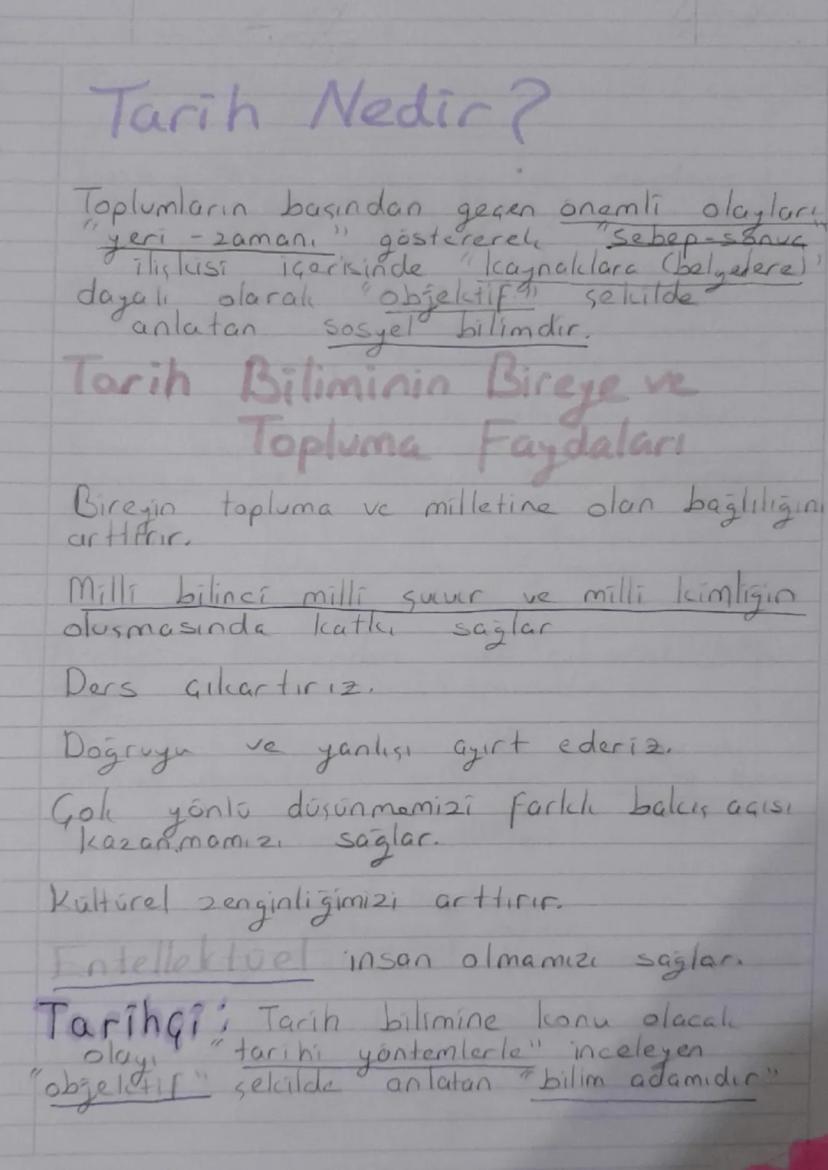 Tarih Nedir?
Toplumların başından geçen önemli olayları
"yeri - zamanı" göstererek "sebep-sonuç
ilişkisi içerisinde "kaynaklara (belgelere)"
dayalı olarak "objektif" şekilde
anlatan sosyel bilimdir.
Tarih Biliminin Bireye ve
Topluma Faydaları
Bireyin topluma ve milletine olan bağlılığını
arttırır.
Milli bilinci milli şuur ve milli kimliğin
oluşmasında katkı sağlar
Ders çıkartırız.
Doğruyu ve yanlışı ayırt ederiz.
Çok yönlü düşünmemizi farklı bakış açısı
kazanmamızı sağlar.
Kültürel zenginliğimizi arttırır.
Entellektüel insan olmamızı sağlar.
Tarihçi: Tarih bilimine konu olacak
olayı "tarihi yöntemlerle" inceleyen
"objektif" şekilde anlatan "bilim adamıdır"